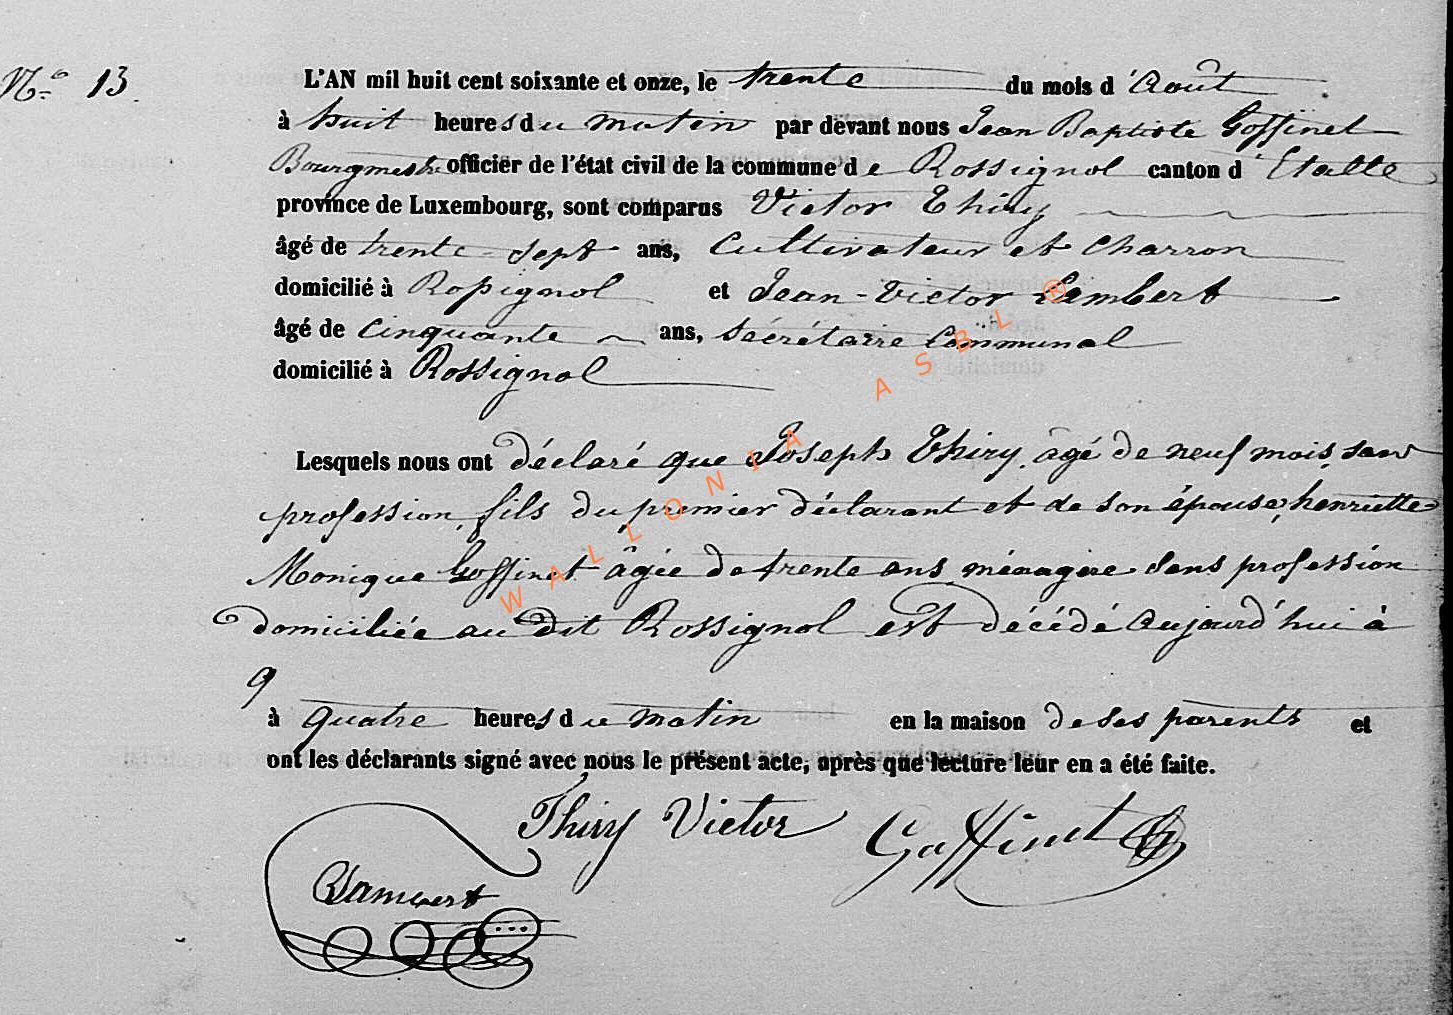 N° 13
L'AN mil huit cent soixante et onze, le trente du mois d'Août
à huit heures du matin par devant nous Jean Baptiste Goffinet
Bourgmestre officier de l'état civil de la commune de Rossignol canton d'Etalle
province de Luxembourg, sont comparus Victor Thiry
âgé de trente-sept ans, Cultivateur et Charron
domicilié à Rossignol et Jean-Victor Lambert
âgé de cinquante ans, Secrétaire Communal
domicilié à Rossignol
Lesquels nous ont déclaré que Joseph Thiry, âgé de neuf mois, sans
profession, fils du premier déclarant et de son épouse, henriette
Monique Goffinet âgée de trente ans, ménagère sans profession
domiciliée au dit Rossignol est décédé aujourd'hui à
q
à quatre heures du matin en la maison de ses parents et
ont les déclarants signé avec nous le présent acte, après que lecture leur en a été faite.
Thiry Victor Goffinet
Lambert
WALLONIA ASBL ®